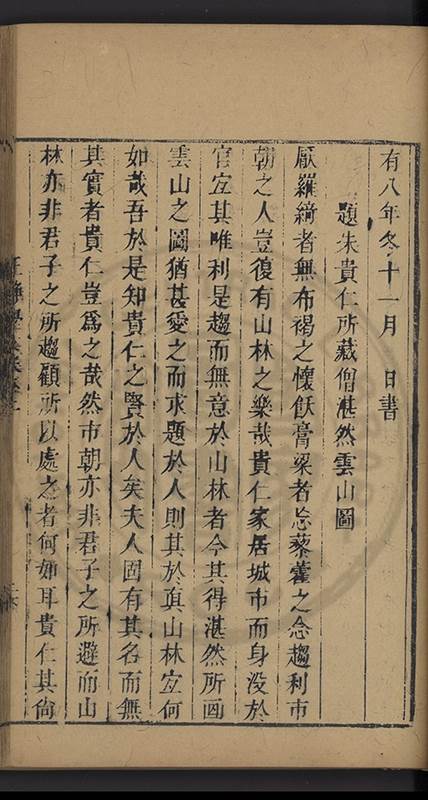 有八年冬十一月　日書
題朱貴仁所藏僧湛然雲山圖
厭羅綺者無布褐之懷飫膏粱者忘藜藿之念趨利市
朝之人豈復有山林之樂哉貴仁家居城市而身没於
官宜其唯利是趨而無意於山林者今其得湛然所画
雲山之圖猶甚愛之而求題於人則其於真山林宜何
如哉吾於是知貴仁之賢於人矣夫人固有其名而無
其實者貴仁豈爲之哉然市朝亦非君子之所避而山
林亦非君子之所趨顧所以處之者何如耳貴仁其尙